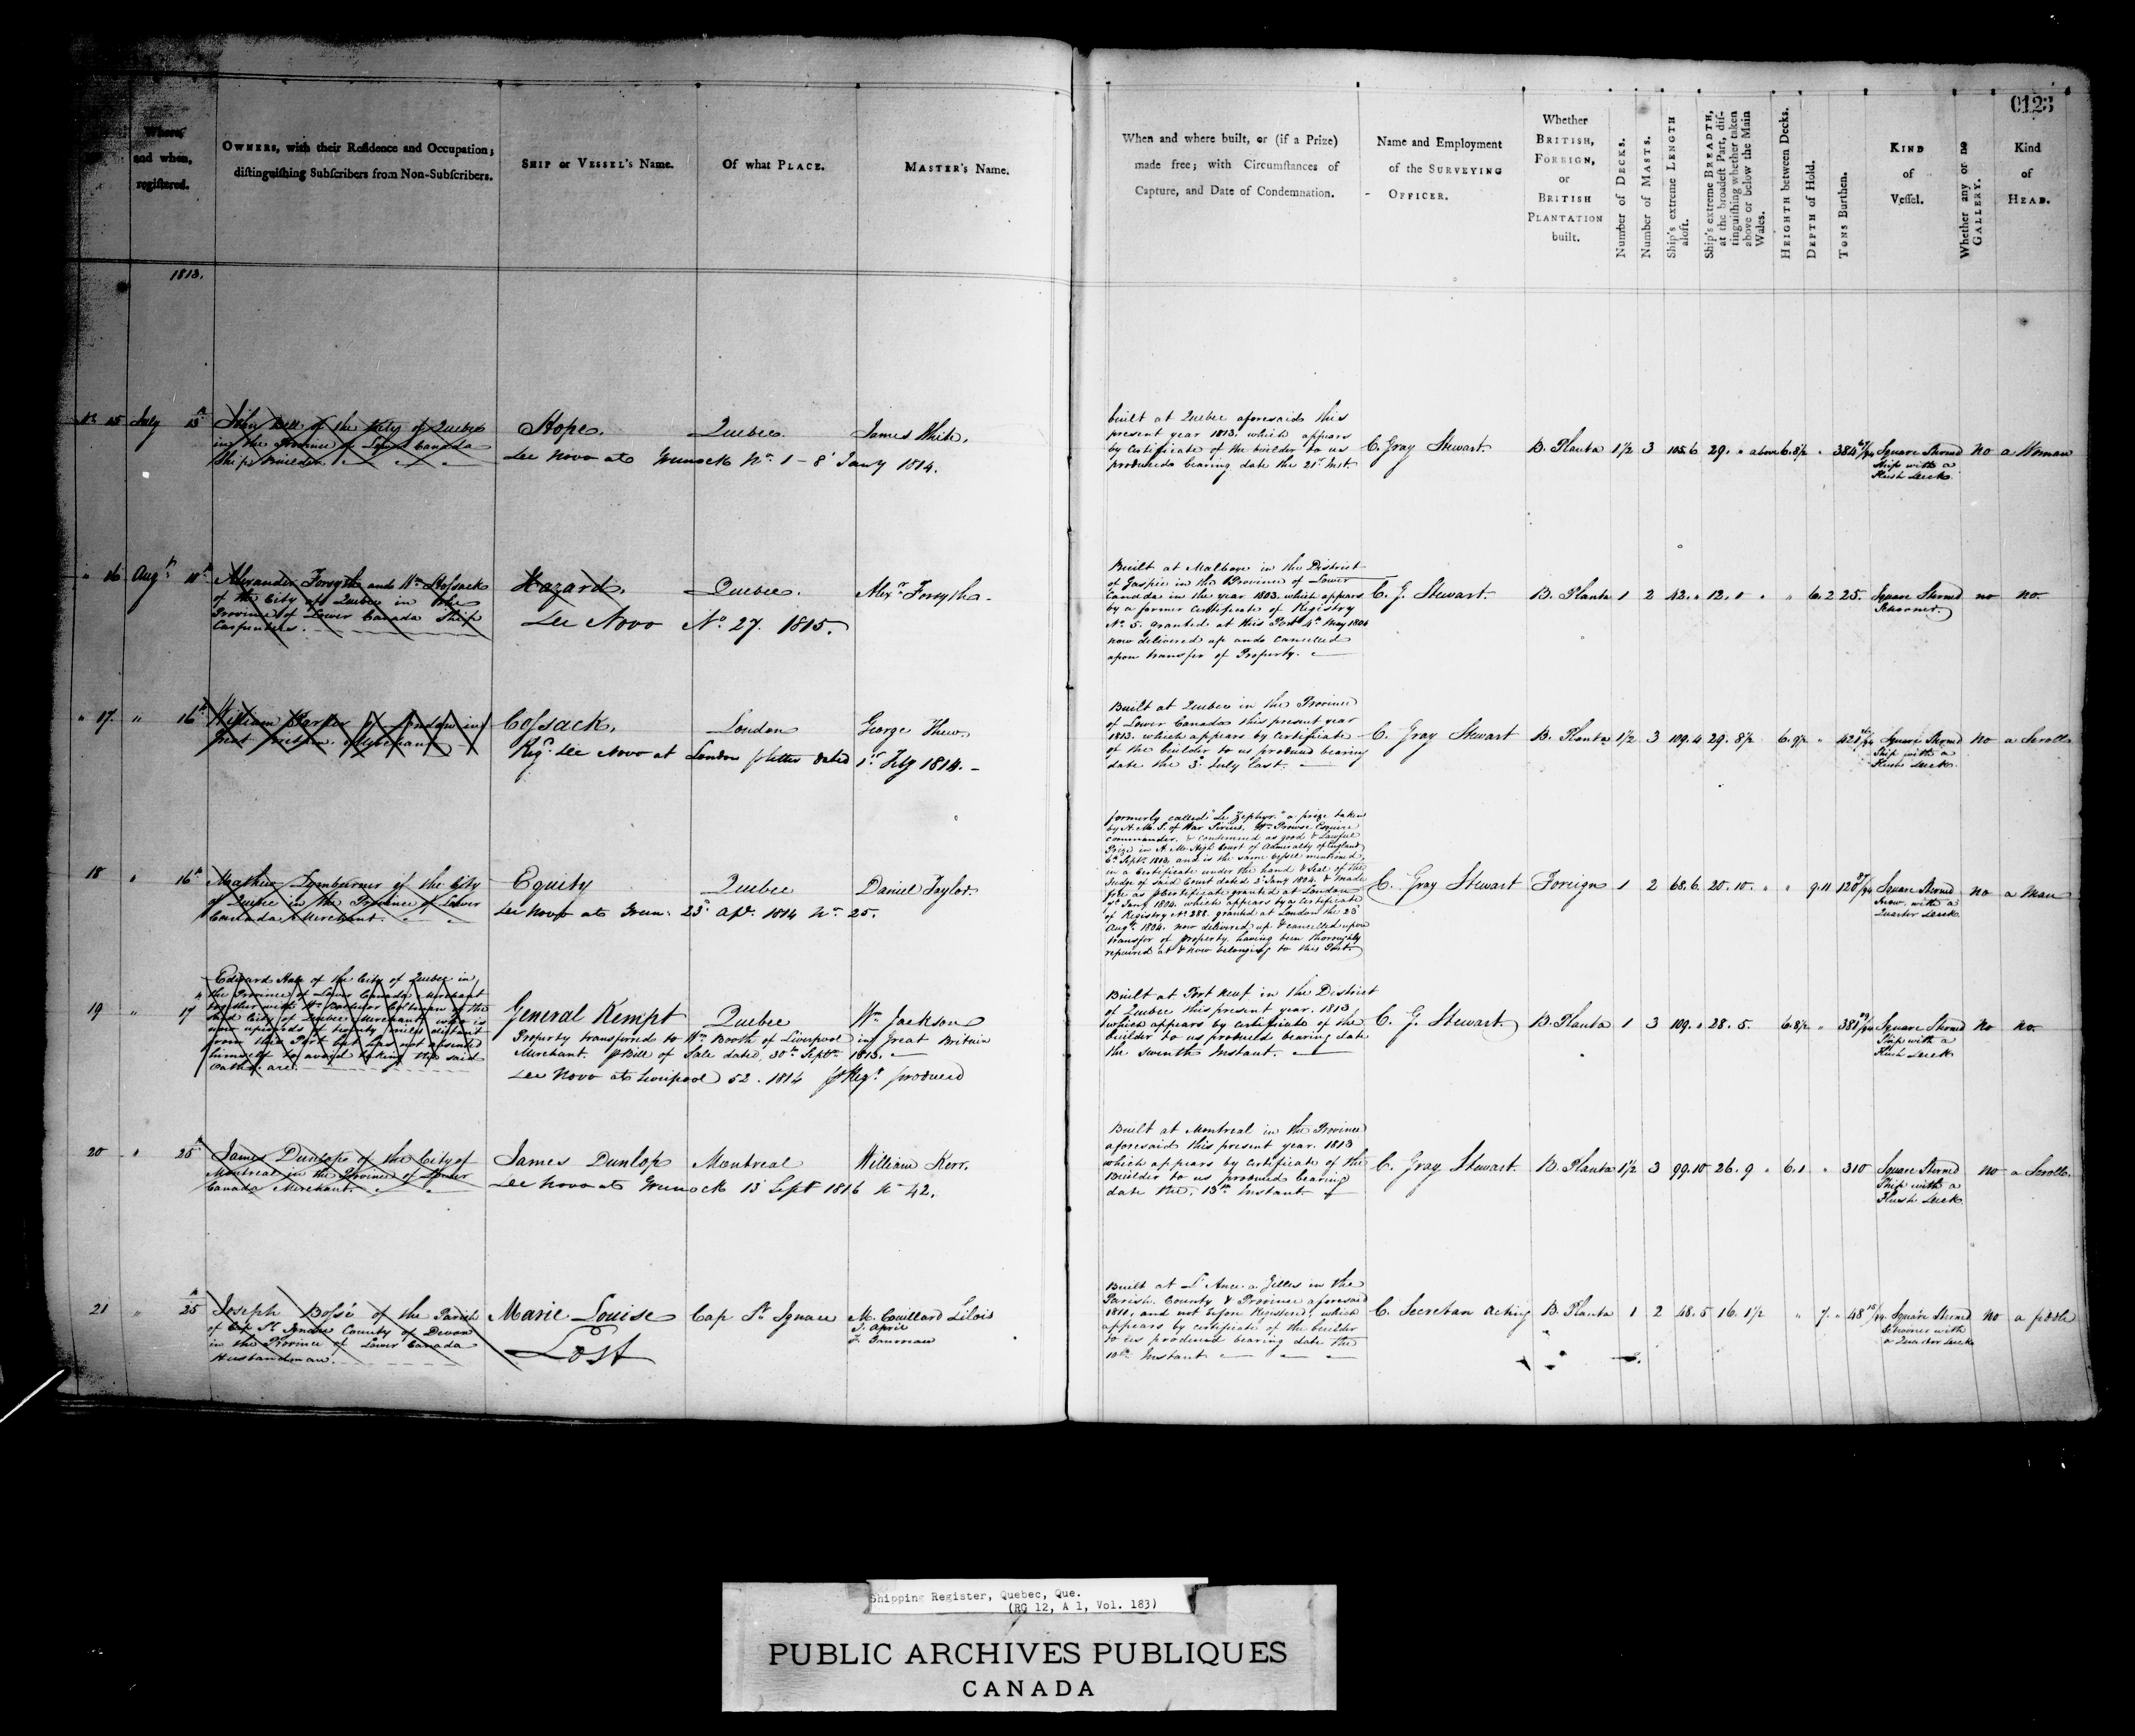 0123
Where,
and when,
registered.
OWNERS, with their Residence and Occupation;
distinguishing Subscribers from Non-Subscribers.
SHIP or VESSEL's Name.
Of what PLACE.
MASTER's Name.
When and where built, or (if a Prize)
made free; with Circumstances of
Capture, and Date of Condemnation.
Name and Employment
of the SURVEYING
OFFICER.
Whether
BRITISH,
FOREIGN,
or
BRITISH
PLANTATION
built.
Number of DECKS.
Number of MASTS.
Ship's extreme LENGTH
aloft.
Ship's extreme BREADTH,
at the broadest Part, dis-
tinguishing whether taken
above or below the Main
Wales.
HEIGHTH between Decks.
DEPTH of Hold.
TONS Burthen.
KIND
of
Vessel.
Whether any or no
GALLERY.
Kind
of
HEAD.
1813.
No 15 July
John Bell of the City of Quebec
in the Province of Lower Canada
Ship Builder
Hope. Quebec. James White.
See Novo at Greenock No. 1 - 8 Jany 1814.
built at Quebec aforesaid this
present year 1813, which appears
by Certificate of the builder to us
produced bearing date the 21st Inst.
C. Gray Stewart. B. Planta 1½ 3 105.6 29. " above 6.8½ " 384
Square Sterned
Ship with a
Flush Deck
no a Woman
" 16 Augt
Alexander Forsyth and Wm Hossack
of the City of Quebec in the
Province of Lower Canada Ship
Carpenters.
Hazard. Quebec. Alexr Forsyth.
See Novo No. 27. 1815.
Built at Malbaye in the District
of Gaspie in the Province of Lower
Canada in the year 1803. which appears
by a former certificate of Registry
No. 5. granted at this Port 4th May 1804
now delivered up and cancelled
upon transfer of Property.
C. G. Stewart. B. Planta 1 2 42. " 12. 1 " " 6. 2 25.
Square Sterned
Schooner.
no no
" 17. " 16th
William Parker of London in
Great Britain Merchant
Cossack. London George Thew.
Regd. See Novo at London p letter dated 1st Feby 1814. -
Built at Quebec in the Province
of Lower Canada this present year
1813. which appears by Certificate
of the builder to us produced bearing
date the 3d July last.
C. Gray Stewart B. Planta 1½ 3 109.4 29. 8½ 6. 9½ "
Square Sterned
Ship with a
Flush Deck
no a Scroll
18 " 16th
Mathew Lymburner of the City
of Quebec in the Province of Lower
Canada Merchant.
Equity Quebec Daniel Taylor.
See Novo at Green: 23d Apl. 1814 No. 25.
formerly called "Le Zephyr" a prize taken
by H. M. S. of War Sirius, Wm Prowse Esquire
commander, & condemned as good & Lawful
Prize in H. M. High Court of Admiralty of England
6th Septr. 1803, and is the same vessel mentioned
in a Certificate under the hand & Seal of the
Judge of said Court dated 3d Jany 1804. & made
free as p Certificate granted at London
Jany 1804. which appears by a Certificate
of Registry No. 288. granted at London the 23d
Augt. 1804. now delivered up & cancelled upon
transfer of property having been thoroughly
repaired at & now belonging to this Port
C. Gray Stewart Foreign 1 2 68. 6. 20. 10. " " 9.11
Square Sterned
Snow with a
Quarter Deck
no a Man
19 " 17
Edward Hale of the City of Quebec in
the Province of Lower Canada Merchant
together with
said City of Quebec Merchant who is
now upwards of twenty miles distant
from this Port but has not absented
himself to avoid taking the said
Oath. are.
General Kempt Quebec Wm Jackson
Property transferred to Wm Booth of Liverpool in Great Britain
Merchant. p Bill of Sale dated 30th Septr. 1813.
See Novo at Liverpool 52. 1814 p Regr. produced
Built at Port Neuf in the District
of Quebec this present year. 1813
which appears by Certificate of the
builder to us produced bearing date
the seventh Instant.
C. G. Stewart. B. Planta 1 3 109. " 28. 5. 6.8½ "
Square Sterned
Ship with a
Flush Deck
no no.
20 " 25th
James Dunlop of the City of
Montreal in the Province of Lower
Canada Merchant.
James Dunlop Montreal William Kerr.
See Novo at Greenock 13 Sept 1816 No 42.
Built at Montreal in the Province
aforesaid this present year. 1813
which appears by Certificate of the
Builder to us produced bearing
date the 13th Instant
C. Gray Stewart. B. Planta 1½ 3 99.10 26. 9 " 6. 1 " 310
Square Sterned
Ship with a
Flush Deck
no a Scroll.
21 " 25th
Joseph Bossé of the Parish
of Cap St Ignace County of Devon
in the Province of Lower Canada
Husbandman.
Marie Louise Cap St Ignace M. Couillard Lilois
Lost
Built at L'Ance a Gilles in the
Parish. County & Province aforesaid
1811, and not before Registered, which
appears by Certificate of the builder
to us produced bearing date the
10th Instant
C. Secretan acting B. Planta 1 2 48. 5 16. 1½ " 7. " 48 15/94
Square Sterned
Schooner with
a Quarter Deck
no
Shipping Register, Quebec, Que.
(RG 12, A 1, Vol. 183)
PUBLIC ARCHIVES PUBLIQUES
CANADA